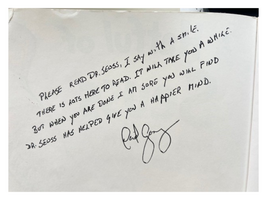 PLEASE READ DR. SEUSS, I SAY WITH A SMILE.
THERE IS LOTS HERE TO READ. IT WILL TAKE YOU A WHILE.
BUT WHEN YOU ARE DONE I AM SURE YOU WILL FIND
DR. SEUSS HAS HELPED GIVE YOU A HAPPIER MIND.